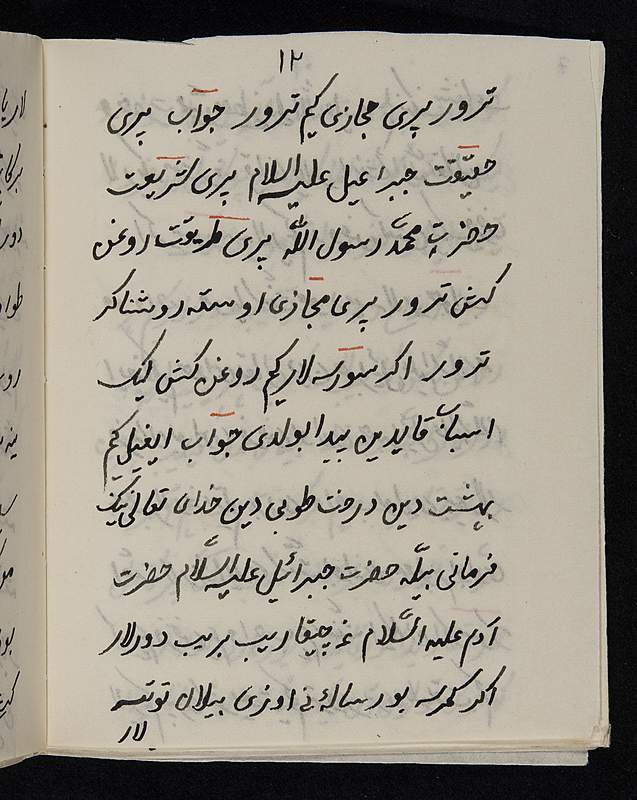 ۱۲
ترور پیری مجازی کیم ترور جواب پیری
حقیقت جبرائیل علیه السلام پیری شریعت
حضرت محمد رسول الله پیری طریقت روغن
کش ترور پیری مجازی اوسته روشناکر
ترور اکر سورسه لار کیم روغن کش لیک
اسباب قایدین پیدا بولدی جواب ایغیل کیم
بهشت دین درخت طوبی دین خدای تعالی نیک
فرمانی بیله حضرت جبرائیل علیه السلام حضرت
آدم علیه السلام غه چیقاریب بریب دورلار
اکر کمرسه بو رساله نی اوزی بیلان توتسه
لار